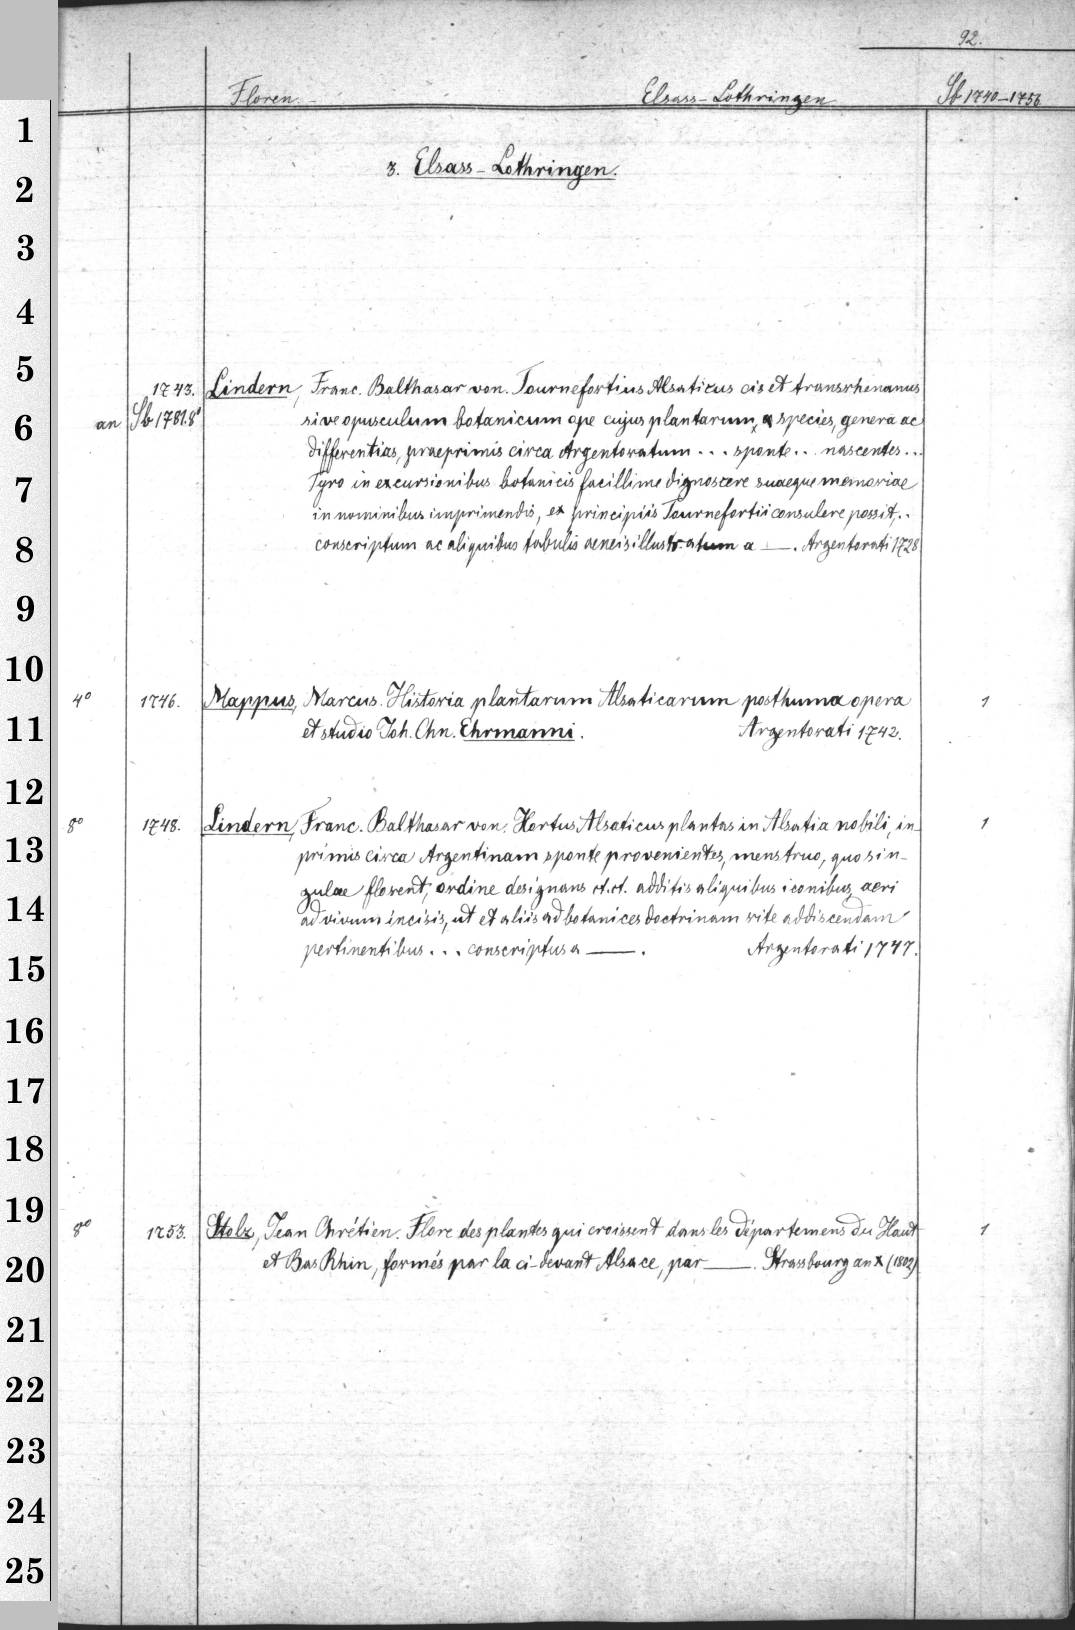 92.
Floren. Elsass-Lothringen Sb 1740-1756
1
2
3. Elsass-Lothringen.
3
4
5
1743. Lindern, Franc. Balthasar von. Tournefortius Alsaticus cis et transrhenanus
6
an Sb 1781.8° sive opusculum botanicum ope cujus plantarum, species, genera ac
differentias, praeprimis circa Argentoratum ... sponte .. nascentes ..
7
Tyro in excursionibus botanicis facillime dignoscere suaeque memoriae
in nominibus imprimendis, ex principiis Tournefortii consulere possit, ..
8
conscriptum ac aliquibus tabulis aeneis illustratum a —. Argentorati 1728
9
10
4° 1746. Mappus, Marcus. Historia plantarum Alsaticarum posthuma opera 1
11
et studio Joh. Chn. Ehrmanni. Argentorati 1742.
12
8° 1748. Lindern, Franc. Balthasar von. Hortus Alsaticus plantas in Alsatia nobili, in- 1
13
primis circa Argentinam sponte provenientes, menstruo, quo sin-
gulae florent, ordine designans ct. ct. additis aliquibus iconibus aeri
14
ad vivum incisis, ut et aliis ad botanices doctrinam rite addiscendam
15
pertinentibus ... conscriptus a —. Argentorati 1747.
16
17
18
19
8° 1753. Stolz, Jean Chrétien. Flore des plantes qui croissent dans les départemens du Haut 1
20
et Bas Rhin, formés par la ci-devant Alsace, par —. Strassbourg an X (1802)
21
22
23
24
25